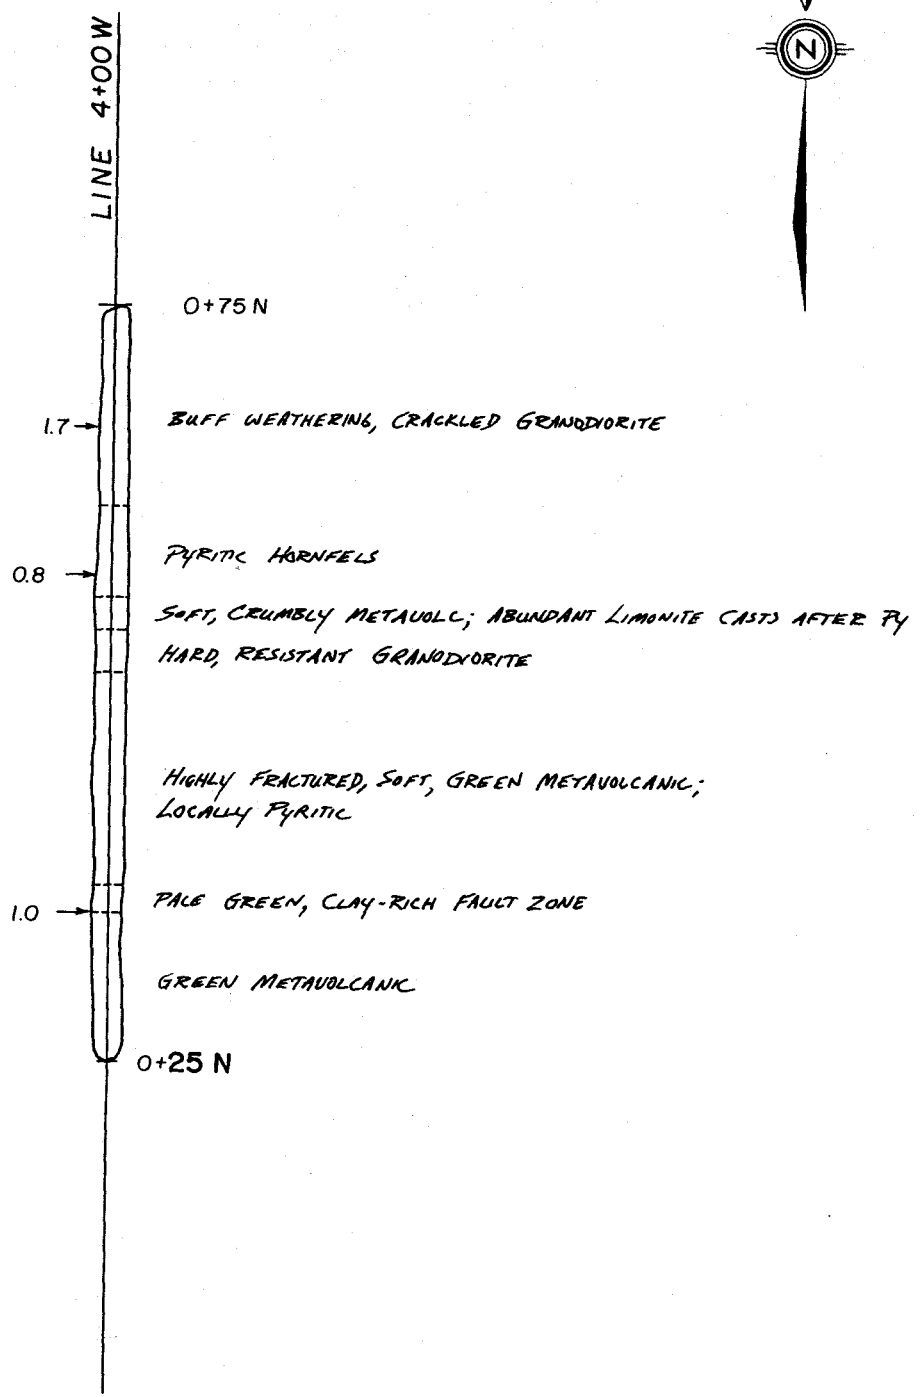 LINE 4+00W
N
0+75 N
1.7
BUFF WEATHERING, CRACKLED GRANODIORITE
PYRITIC HORNFELS
0.8
SOFT, CRUMBLY METAVOLC; ABUNDANT LIMONITE CASTS AFTER PY
HARD, RESISTANT GRANODIORITE
HIGHLY FRACTURED, SOFT, GREEN METAVOLCANIC;
LOCALLY PYRITIC
1.0
PALE GREEN, CLAY-RICH FAULT ZONE
GREEN METAVOLCANIC
0+25 N